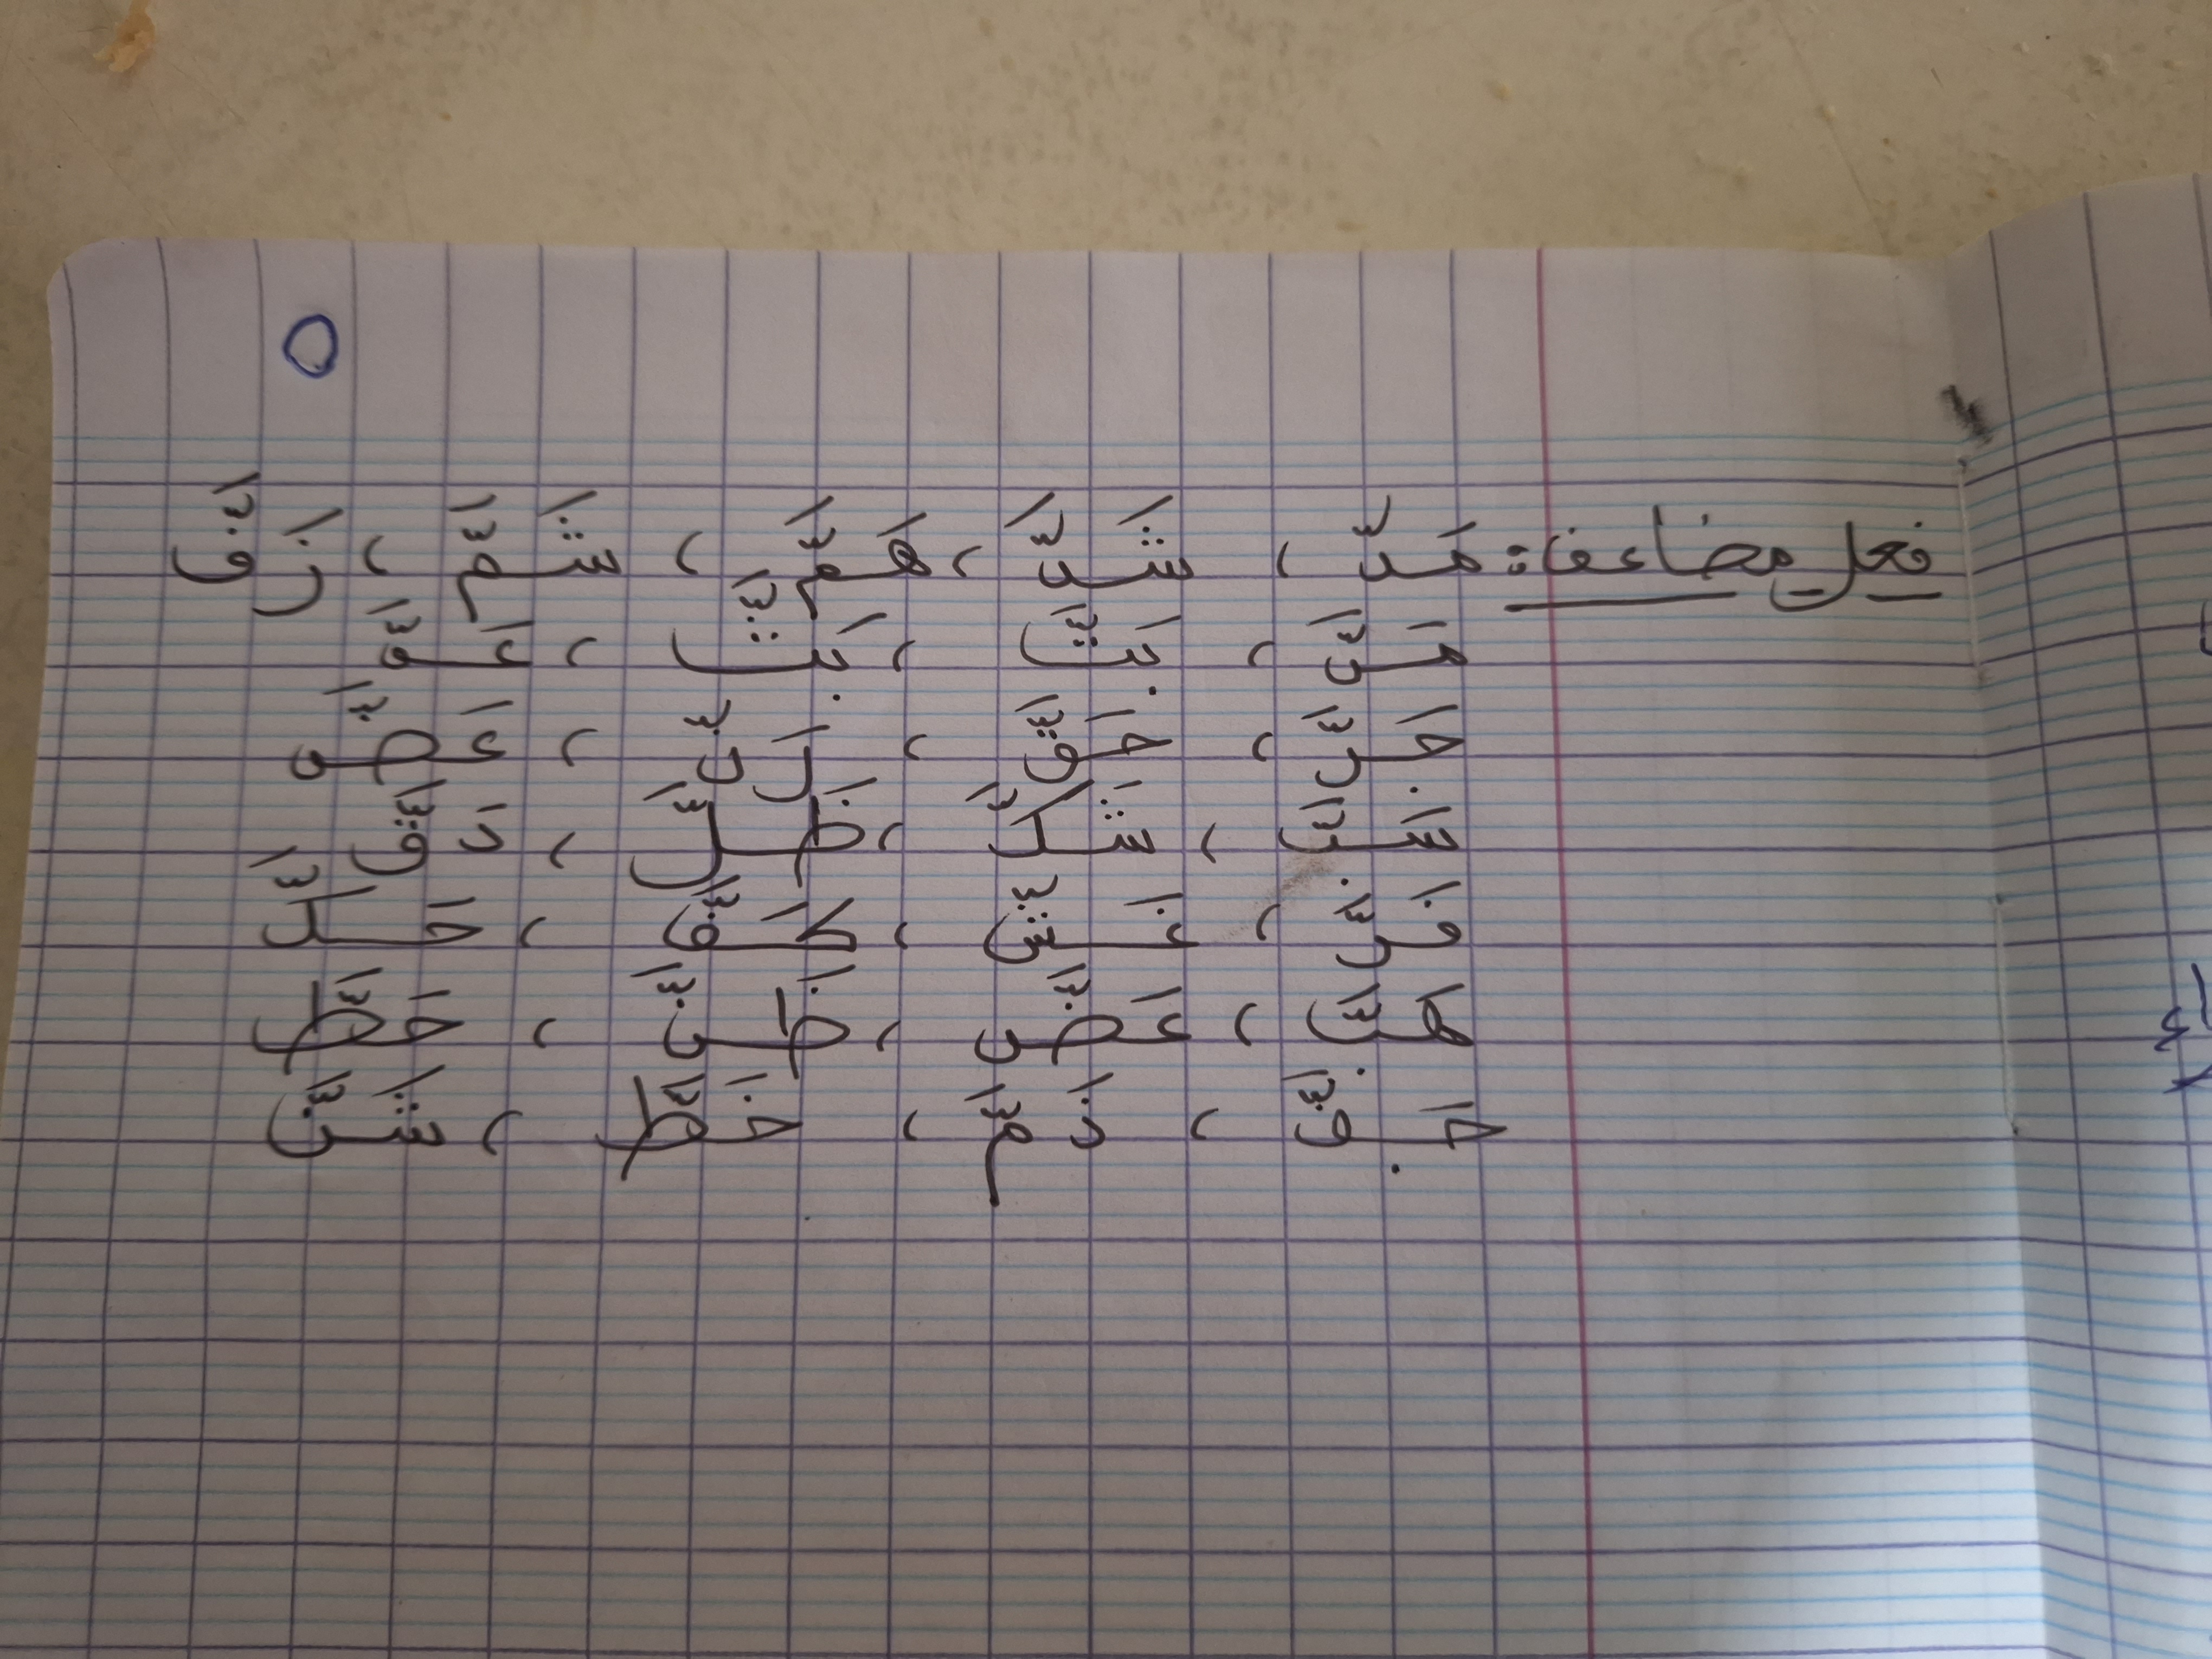 ٥
فعل مضاعف: مَدَّ، شَدَّ، هَمَّ، شَمَّ، زَفَّ
مَسَّ، بَتَّ، بَثَّ، عَقَّ
جَرَّ، حَقَّ، رَنَّ، عَضَّ
سَبَّ، شَكَّ، ظَلَّ، دَقَّ
فَرَّ، غَشَّ، كَفَّ، حَكَّ
كَبَّ، عَضَّ، ظَنَّ، حَطَّ
جَفَّ، ذَمَّ، خَطَّ، شَنَّ